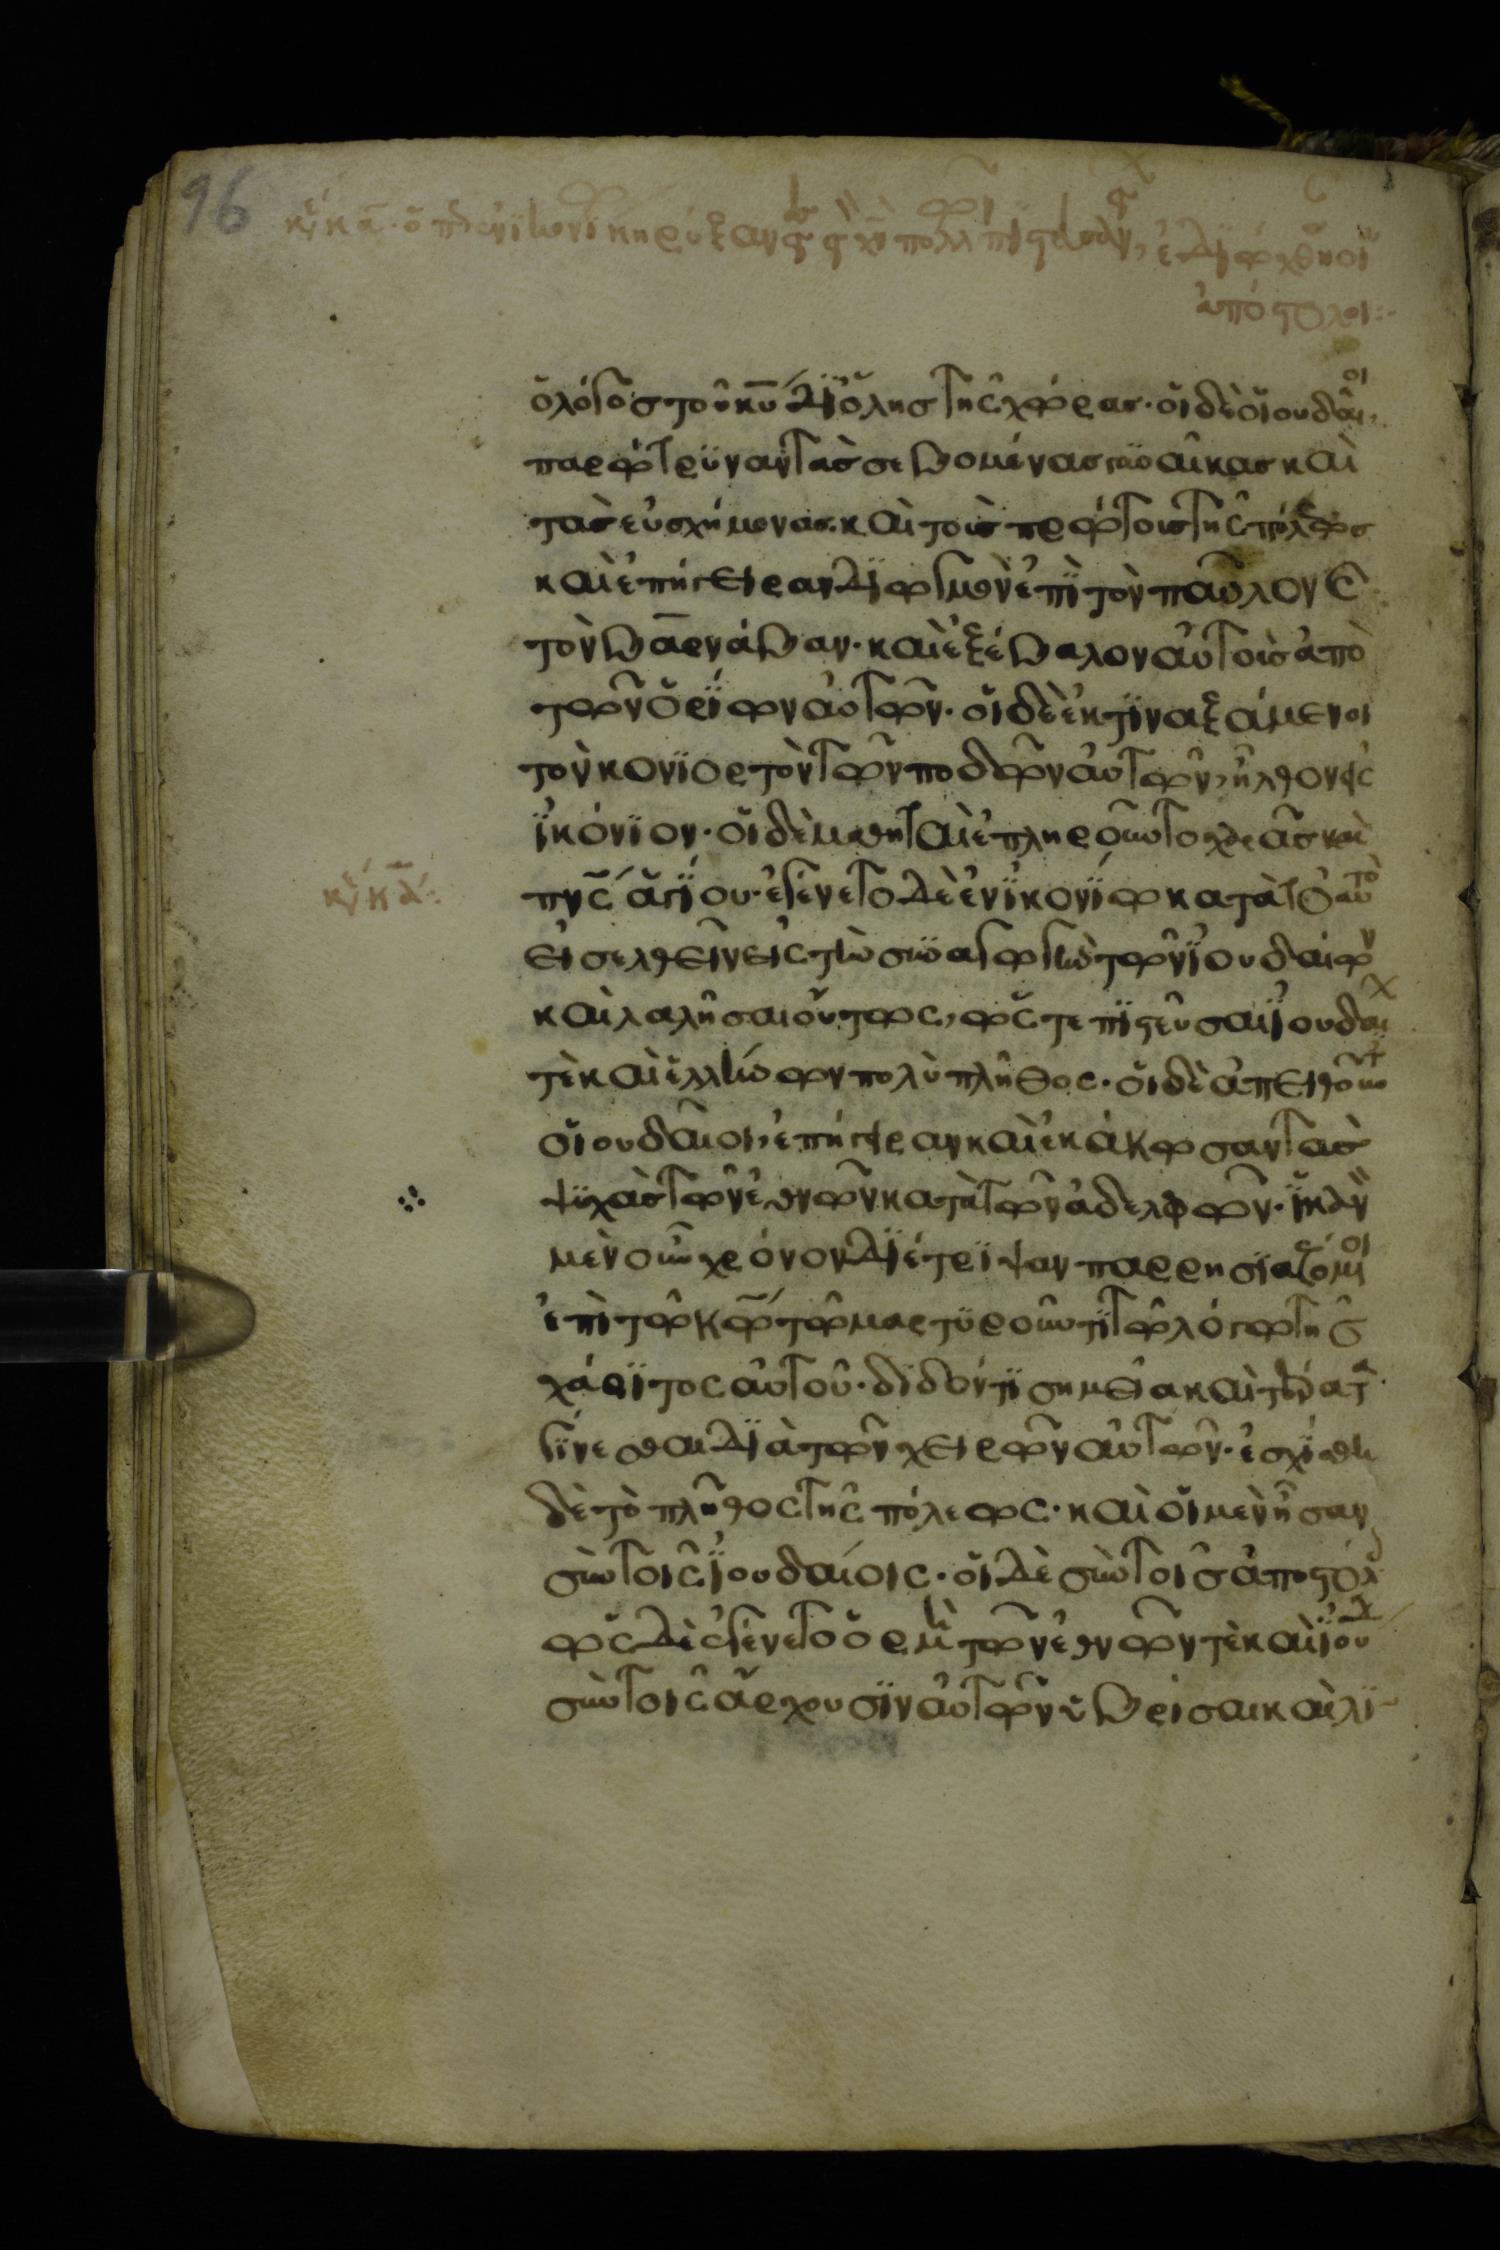 96
ἀπόστολοι:
ὁ λόγος τοῦ κυ δϊ ὅλης τῆς χώρας· οἱ δὲ ϊουδαῖοι,
παρώτρϋναν τὰς σεβομένας γυναῖκας καὶ
τὰς εὐσχήμονας· καὶ τοὺς πρώτους τῆς πόλεως
καὶ ἐπήγειραν δϊωγμὸν ἐπϊ τὸν παῦλον καὶ
τὸν βαρνάβαν· καὶ ἐξέβαλον αὐτοὺς ἀπὸ
τῶν ὁρίων αὐτῶν· οἱ δὲ ἐκτϊναξάμενοι
τὸν κονϊορτὸν τῶν ποδῶν αὐτῶν, ἦλθον εἰς
ϊκόνϊον· οἱ δὲ μαθηταὶ ἐπληροῦντο χαρᾶς καὶ
πνς ἁγίου· ἐγένετο δὲ ἐν ϊκονίω κατὰ τὸ αὐτὸ
εἰσελθεῖν εἰς τὴν συναγωγὴν τῶν ϊουδαίων
καὶ λαλῆσαι οὕτως, ὥστε πϊστεῦσαι ϊουδαι
τὲ καὶ ἑλλήνων πολὺ πλῆθος· οἱ δὲ ἀπειθοῦντ
ϊουδαῖοι, ἐπήγειραν καὶ ἐκάκωσαν τὰς
ψϋχὰς τῶν ἐθνῶν κατὰ τῶν ἀδελφῶν· ϊκανὸν
μὲν οὖν χρόνον δϊέτρϊψαν παρρησϊαζόμενοι
ἐπὶ τῶ κω τῶ μαρτϋροῦντϊ τῶ λόγω τῆς
χάρϊτος αὐτοῦ· δϊδόντϊ σημεῖα καὶ τέρατα
γϊνεσθαι δϊὰ τῶν χειρῶν αὐτῶν· ἐσχίσθη
δὲ τὸ πλῆθος τῆς πόλεως· καὶ οἱ μὲν ἦσαν
σὺν τοῖς ϊουδαίοις· οἱ δὲ σὺν τοῖς ἀποστόλ
ὡς δὲ ἐγένετο ὁρμὴ τῶν ἐθνῶν τὲ καὶ ϊουδ
σὺν τοῖς ἄρχουσϊν αὐτῶν ὑβρίσαι καὶ λϊ